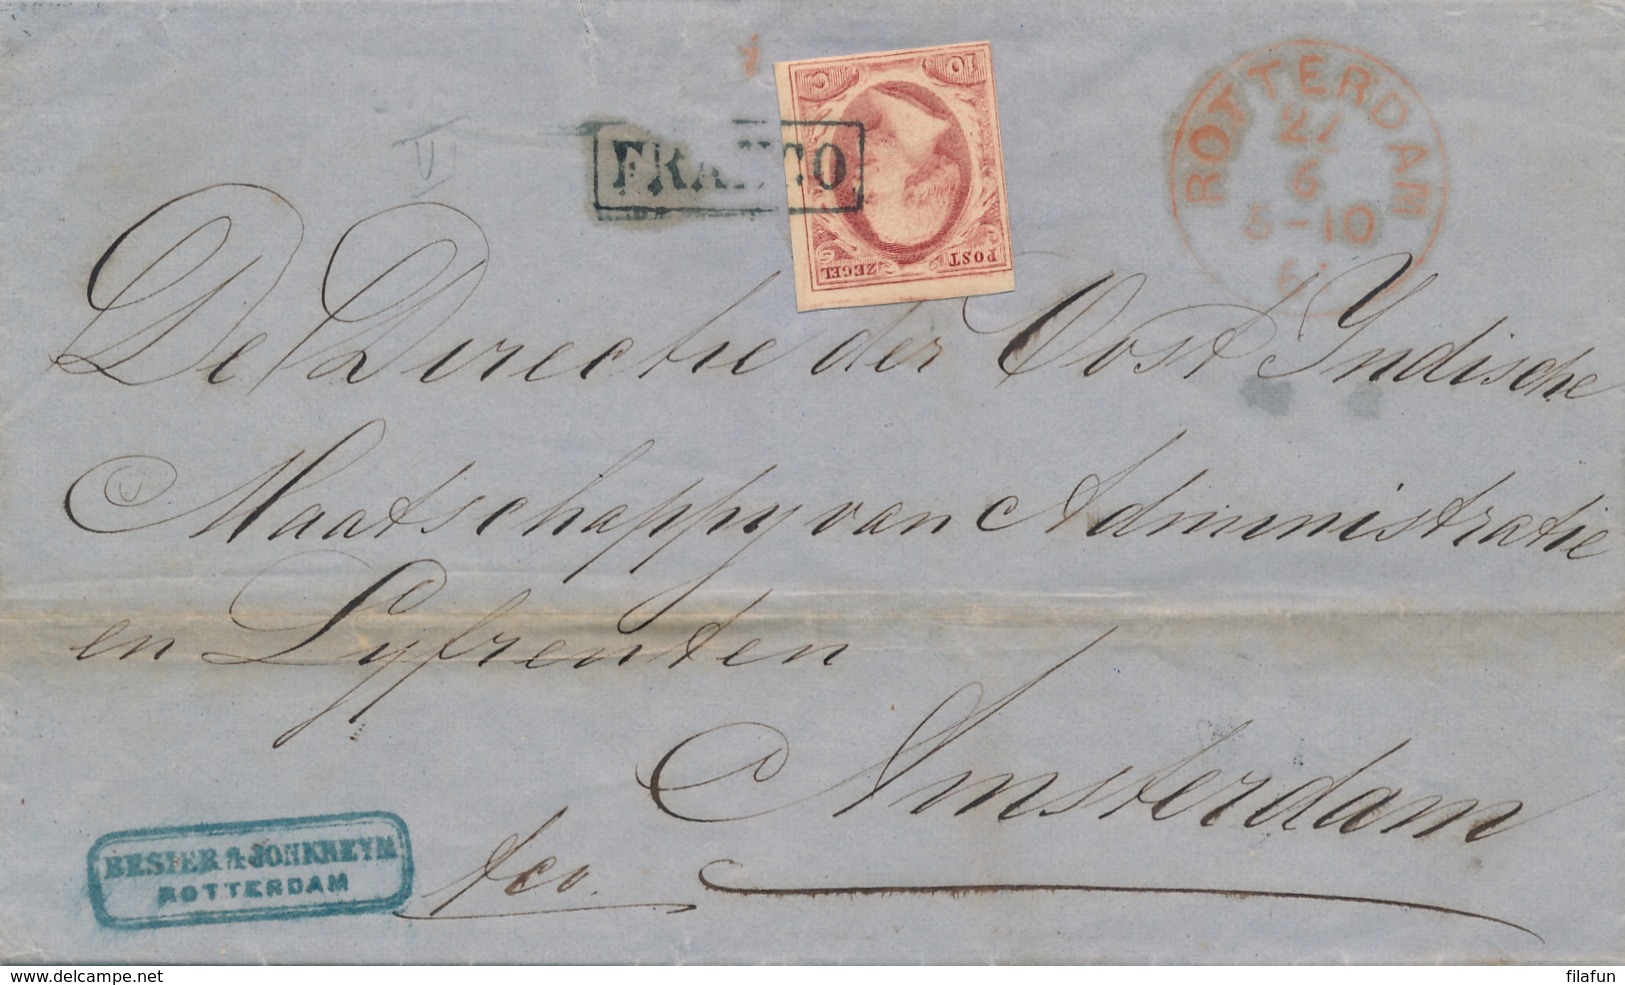 FRANCO
10 C
POST ZEGEL
ROTTERDAM
6
3-10
De Directie der Oost Indische
Maatschappy van Administratie
en Lyfrenten
Amsterdam
fco.
BESIER & JONKHEYM
ROTTERDAM
www.delcampe.net
filafun